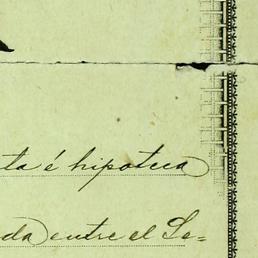 ta é hipoteca
da entre el Se=